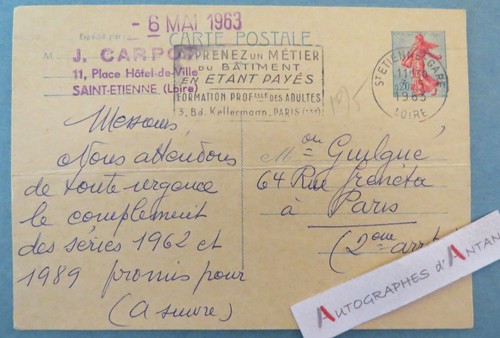 - 6 MAI 1963
CARTE POSTALE
J. CARPOT
11, Place Hôtel-de-Ville
SAINT-ETIENNE (Loire)
APPRENEZ UN MÉTIER
DU BATIMENT
EN ETANT PAYÉS
FORMATION PROFelle DES ADULTES
3, Bd. Kellermann, PARIS
ST ETIENNE GARE
1963
LOIRE
Messieurs
Nous attendons
de toute urgence
le complément
des séries 1962 et
1989 promis pour
(à suivre)
Mon Guilqué
64 Rue Greneta
à Paris
(2ème arrt
AUTOGRAPHES d'ANTAN